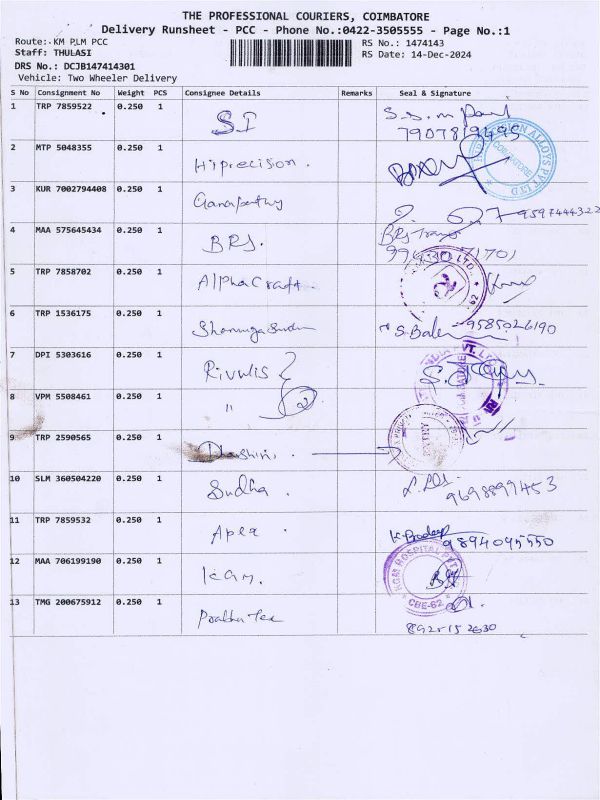 THE PROFESSIONAL COURIERS, COIMBATORE
Delivery Runsheet - PCC - Phone No.:0422-3505555 - Page No.:1
Route:- KM PLM PCC
RS No.: 1474143
Staff: THULASI
RS Date: 14-Dec-2024
DRS No.: DCJB147414301
Vehicle: Two Wheeler Delivery
S No Consignment No Weight PCS Consignee Details Remarks Seal & Signature
1 TRP 7859522 0.250 1 S.I
2 MTP 5048355 0.250 1 Hiprecision.
COIMBATORE
3 KUR 7002794408 0.250 1 Ganapathy
9597444322
4 MAA 575645434 0.250 1 BRS.
BRS Trans
5 TRP 7858702 0.250 1 AlphaCraft.
6 TRP 1536175 0.250 1 S.Bale 9585026190
7 DPI 5303616 0.250 1 Rivulis
8 VPM 5508461 0.250 1 " 2
9 TRP 2590565 0.250 1
10 SLM 360504220 0.250 1 Sudha.
9698899453
11 TRP 7859532 0.250 1 Apex
K.Pradeep
9894095550
12 MAA 706199190 0.250 1 KGM.
HOSPITAL
CBE-62
13 TMG 200675912 0.250 1 Prabhu Tex